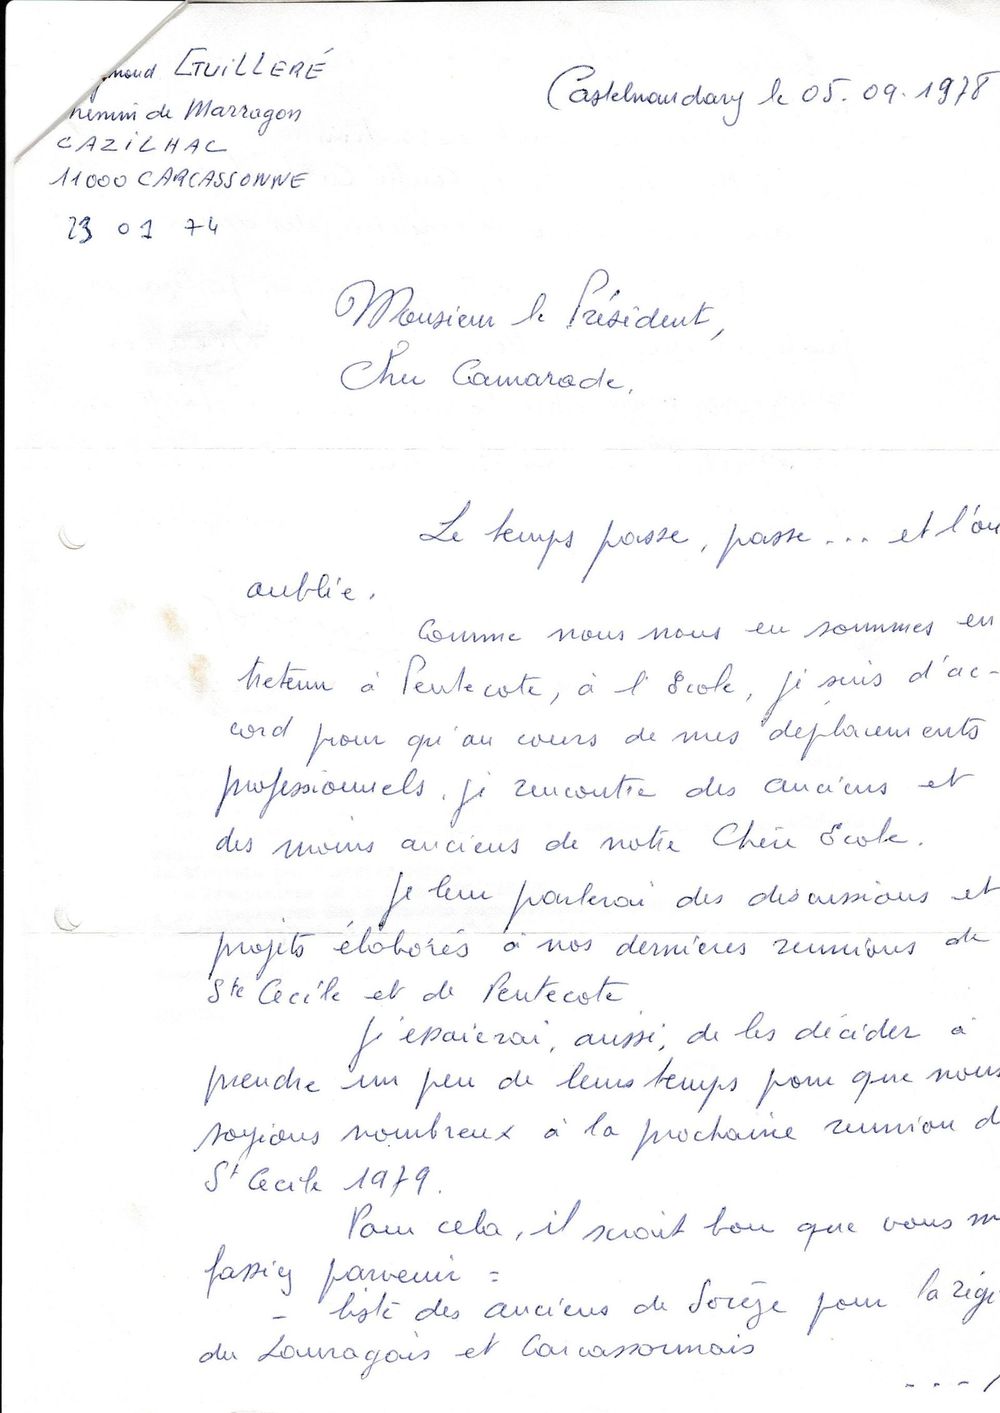 mond GUILLERÉ
hemin de Marragon
CAZILHAC
11000 CARCASSONNE
23 01 74
Castelnaudary le 05.09.1978
Monsieur le Président,
Cher Camarade,
Le temps passe, passe... et l'on
oublie.
Comme nous nous en sommes en
tretenu à Pentecote, à l'Ecole, je suis d'ac-
cord pour qu'au cours de mes déplacements
professionnels, je rencontre des anciens et
des moins anciens de notre Chère Ecole.
Je leur parlerai des discussions et
projets élaborés à nos dernières reunions de
Ste Cecile et de Pentecote
J'essaierai, aussi, de les décider à
prendre un peu de leurs temps pour que nous
soyions nombreux à la prochaine reunion d
St Cecile 1979.
Pour cela, il serait bon que vous m
fassiez parvenir =
- liste des anciens de Sorèze pour la régi
du Lauragais et Carcassonnais
---/